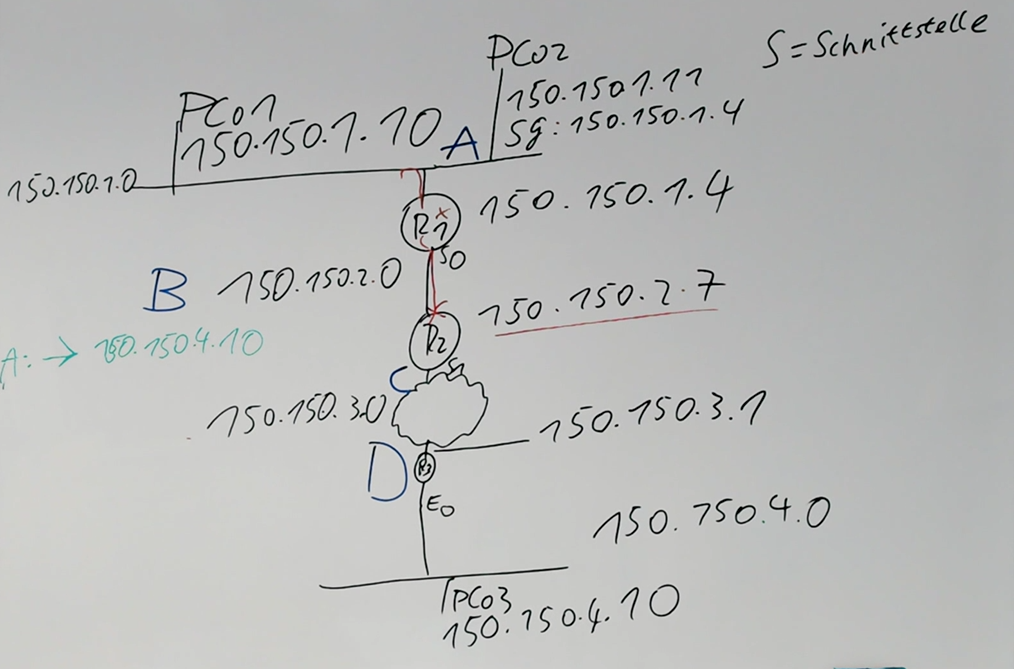 S = Schnittstelle
PC02
150.150.1.11
Sg: 150.150.1.4
PC01
150.150.1.10
A
150.150.1.0
R1
150.150.1.4
S0
B
150.150.2.0
150.150.2.7
R2
A: → 150.150.4.10
S1
C
150.150.3.0
150.150.3.1
D
R3
E0
150.150.4.0
PC03
150.150.4.10